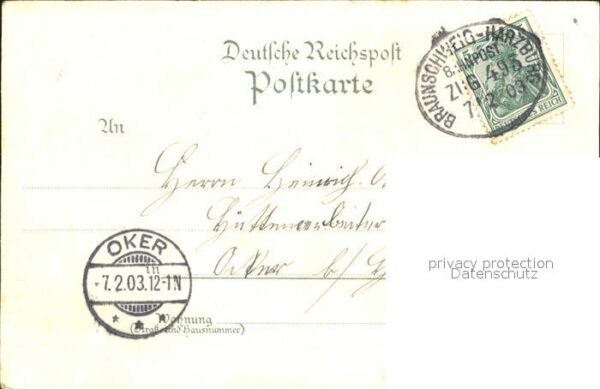 Deutsche Reichspost
Postkarte
BRAUNSCHWEIG-HARZBURG
BAHNPOST
ZUG 493
7. 2. 03
REICH
An
Herrn Heinrich O
Hüttenarbeiter
Ocker b/ H
privacy protection
Datenschutz
OKER
7.2.03.12-1N
in
Wohnung
(Straße und Hausnummer)